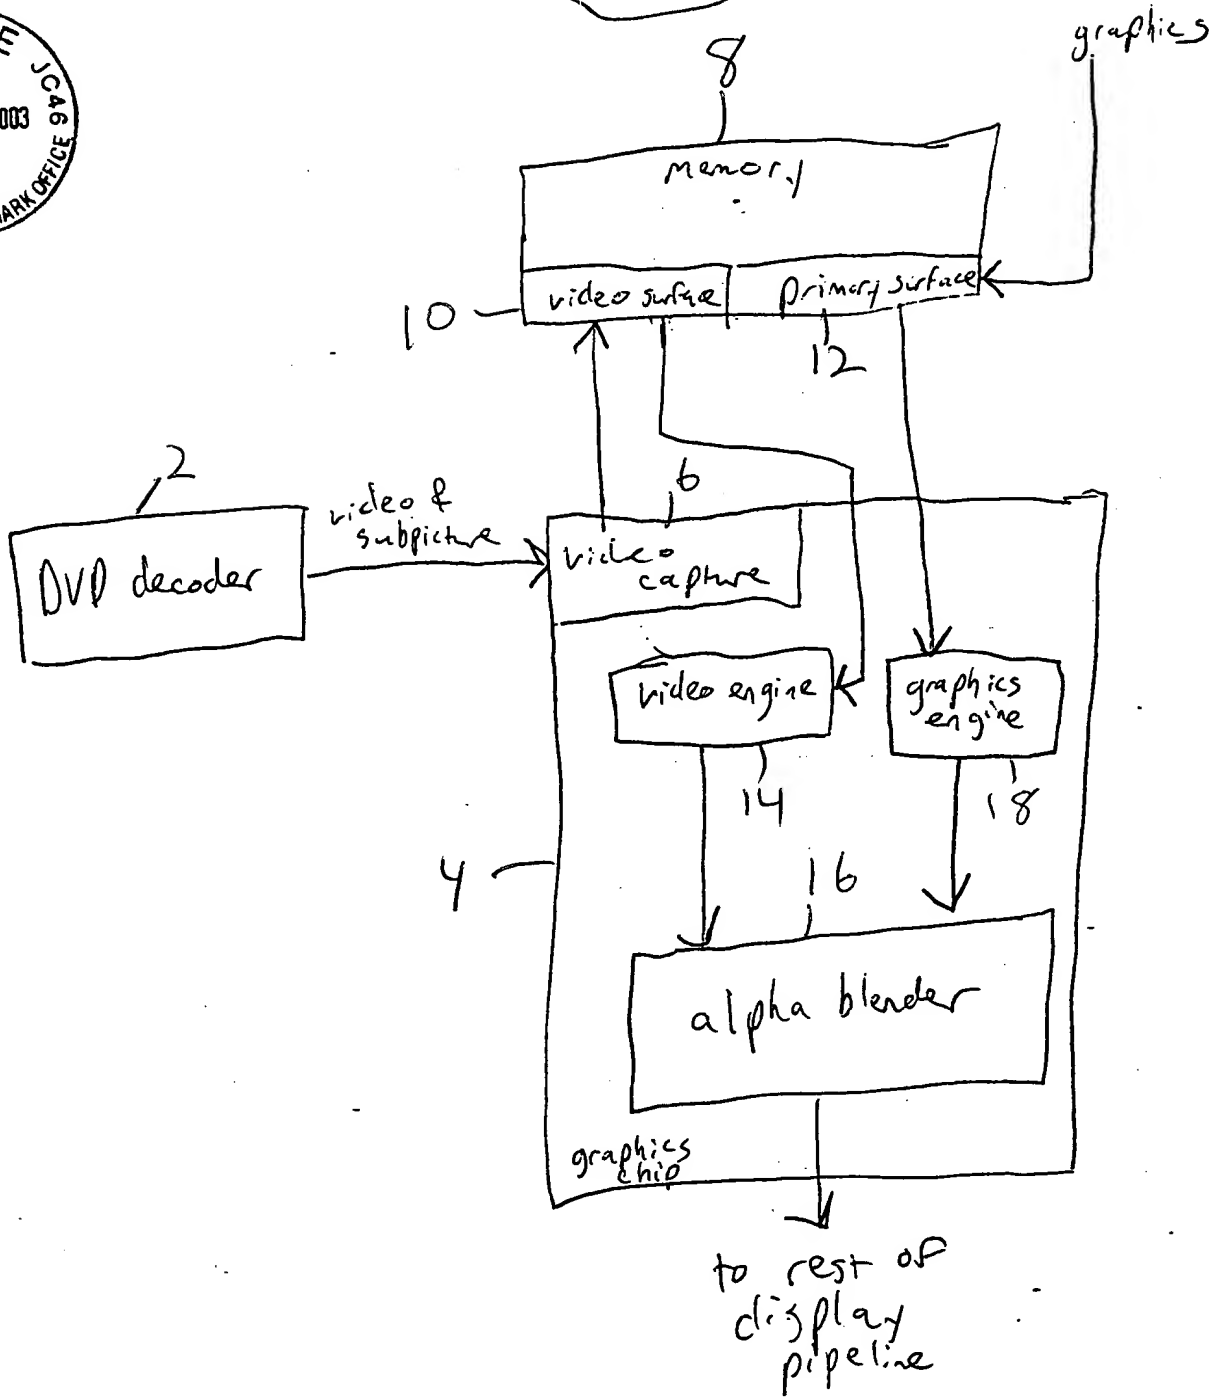 E JC46
003
MARK OFFICE
graphics
8
memory
video surface
primary surface
10
12
2
video &
subpicture
6
DVD decoder
video
capture
video engine
graphics
engine
14
18
4
16
alpha blender
graphics
chip
to rest of
display
pipeline